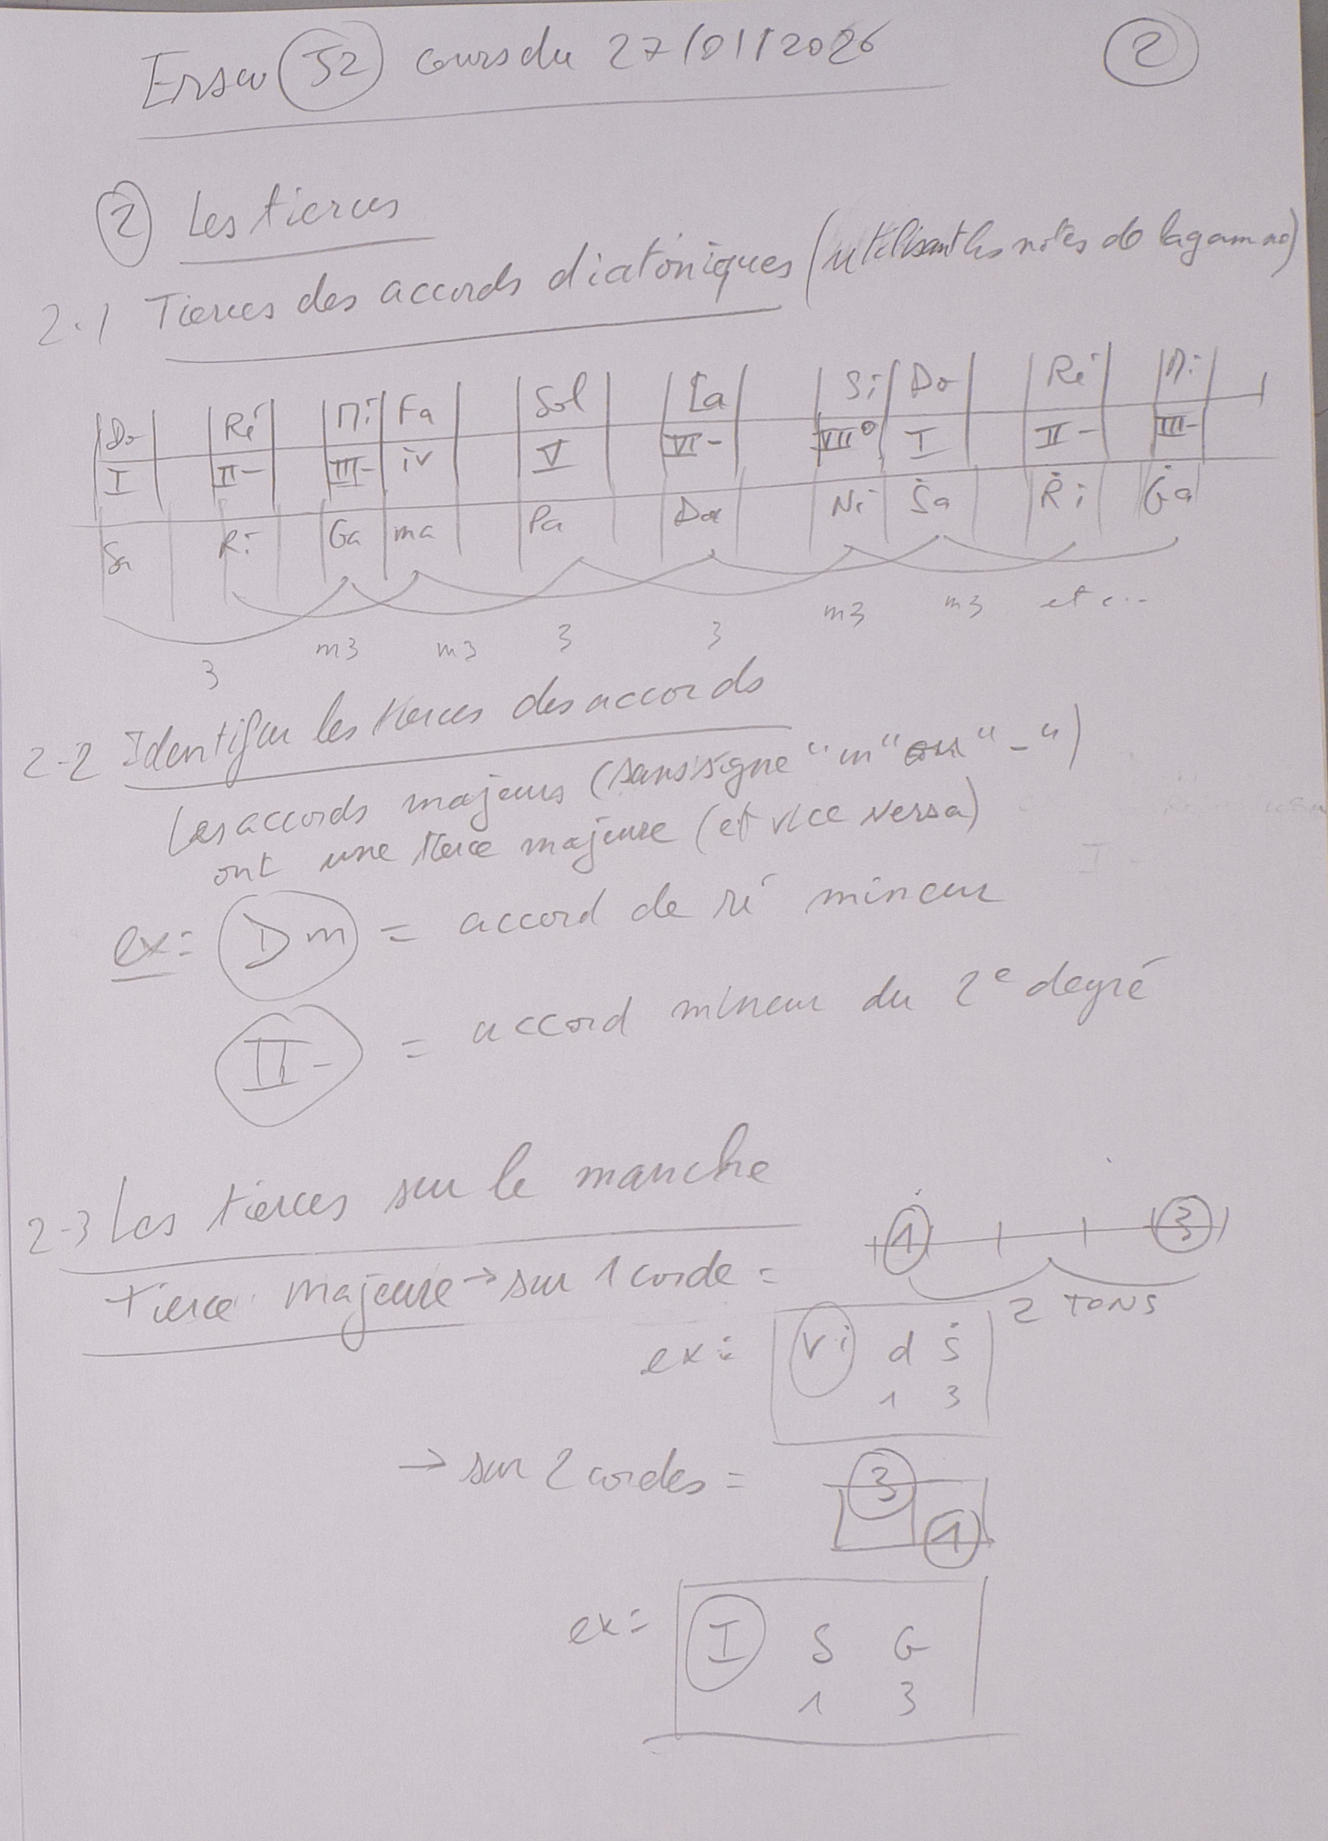 52 cours du 27/01/2026 2
2 Les tierces
2.1 Tierces des accords diatoniques (utilisant les notes de la gamme)
Do Ré Mi Fa Sol La Si Do Ré Mi
I II- III- iv V VI- VII° I II- III-
Sa Ri Ga ma Pa Da Ni Ṡa Ṙi Ġa
3 m3 m3 3 3 m3 m3 etc...
2-2 Identifier les tierces des accords
Les accords majeurs (sans signe "m" ou "-")
ont une tierce majeure (et vice versa)
ex: Dm = accord de ré mineur
II- = accord mineur du 2e degré
2-3 Les tierces sur le manche
tierce majeure → sur 1 corde = 1 3
2 TONS
ex: d ṡ
1 3
→ sur 2 cordes = 3
1
ex= I S G
1 3